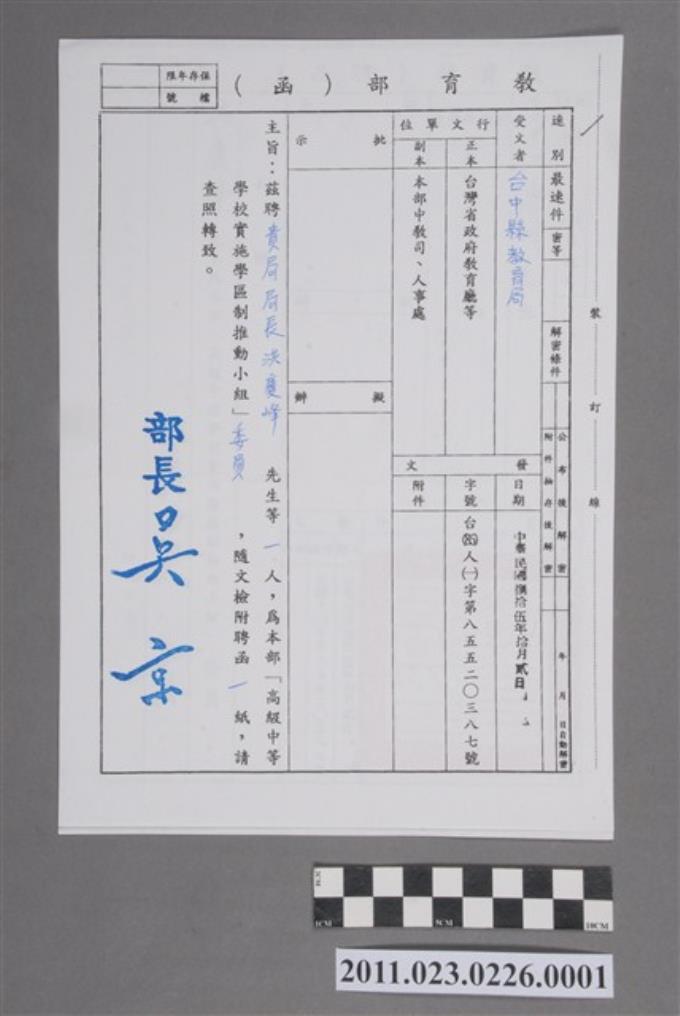 教育部（函）
保存年限
檔號
速別
最速件
密等
解密條件
公布後解密
附件抽存後解密
年 月 日自動解密
受文者
台中縣教育局
行文單位
正本
台灣省政府教育廳等
副本
本部中教司、人事處
發文
日期
中華民國捌拾伍年拾月貳日
字號
台(85)人(一)字第八五五二〇三八七號
附件
批示
擬辦
主旨：茲聘貴局局長洪慶峰 先生等一人，為本部「高級中等
學校實施學區制推動小組」委員，隨文檢附聘函一紙，請
查照轉致。
部長吳京
裝 訂 線
1CM
5CM
10CM
2011.023.0226.0001